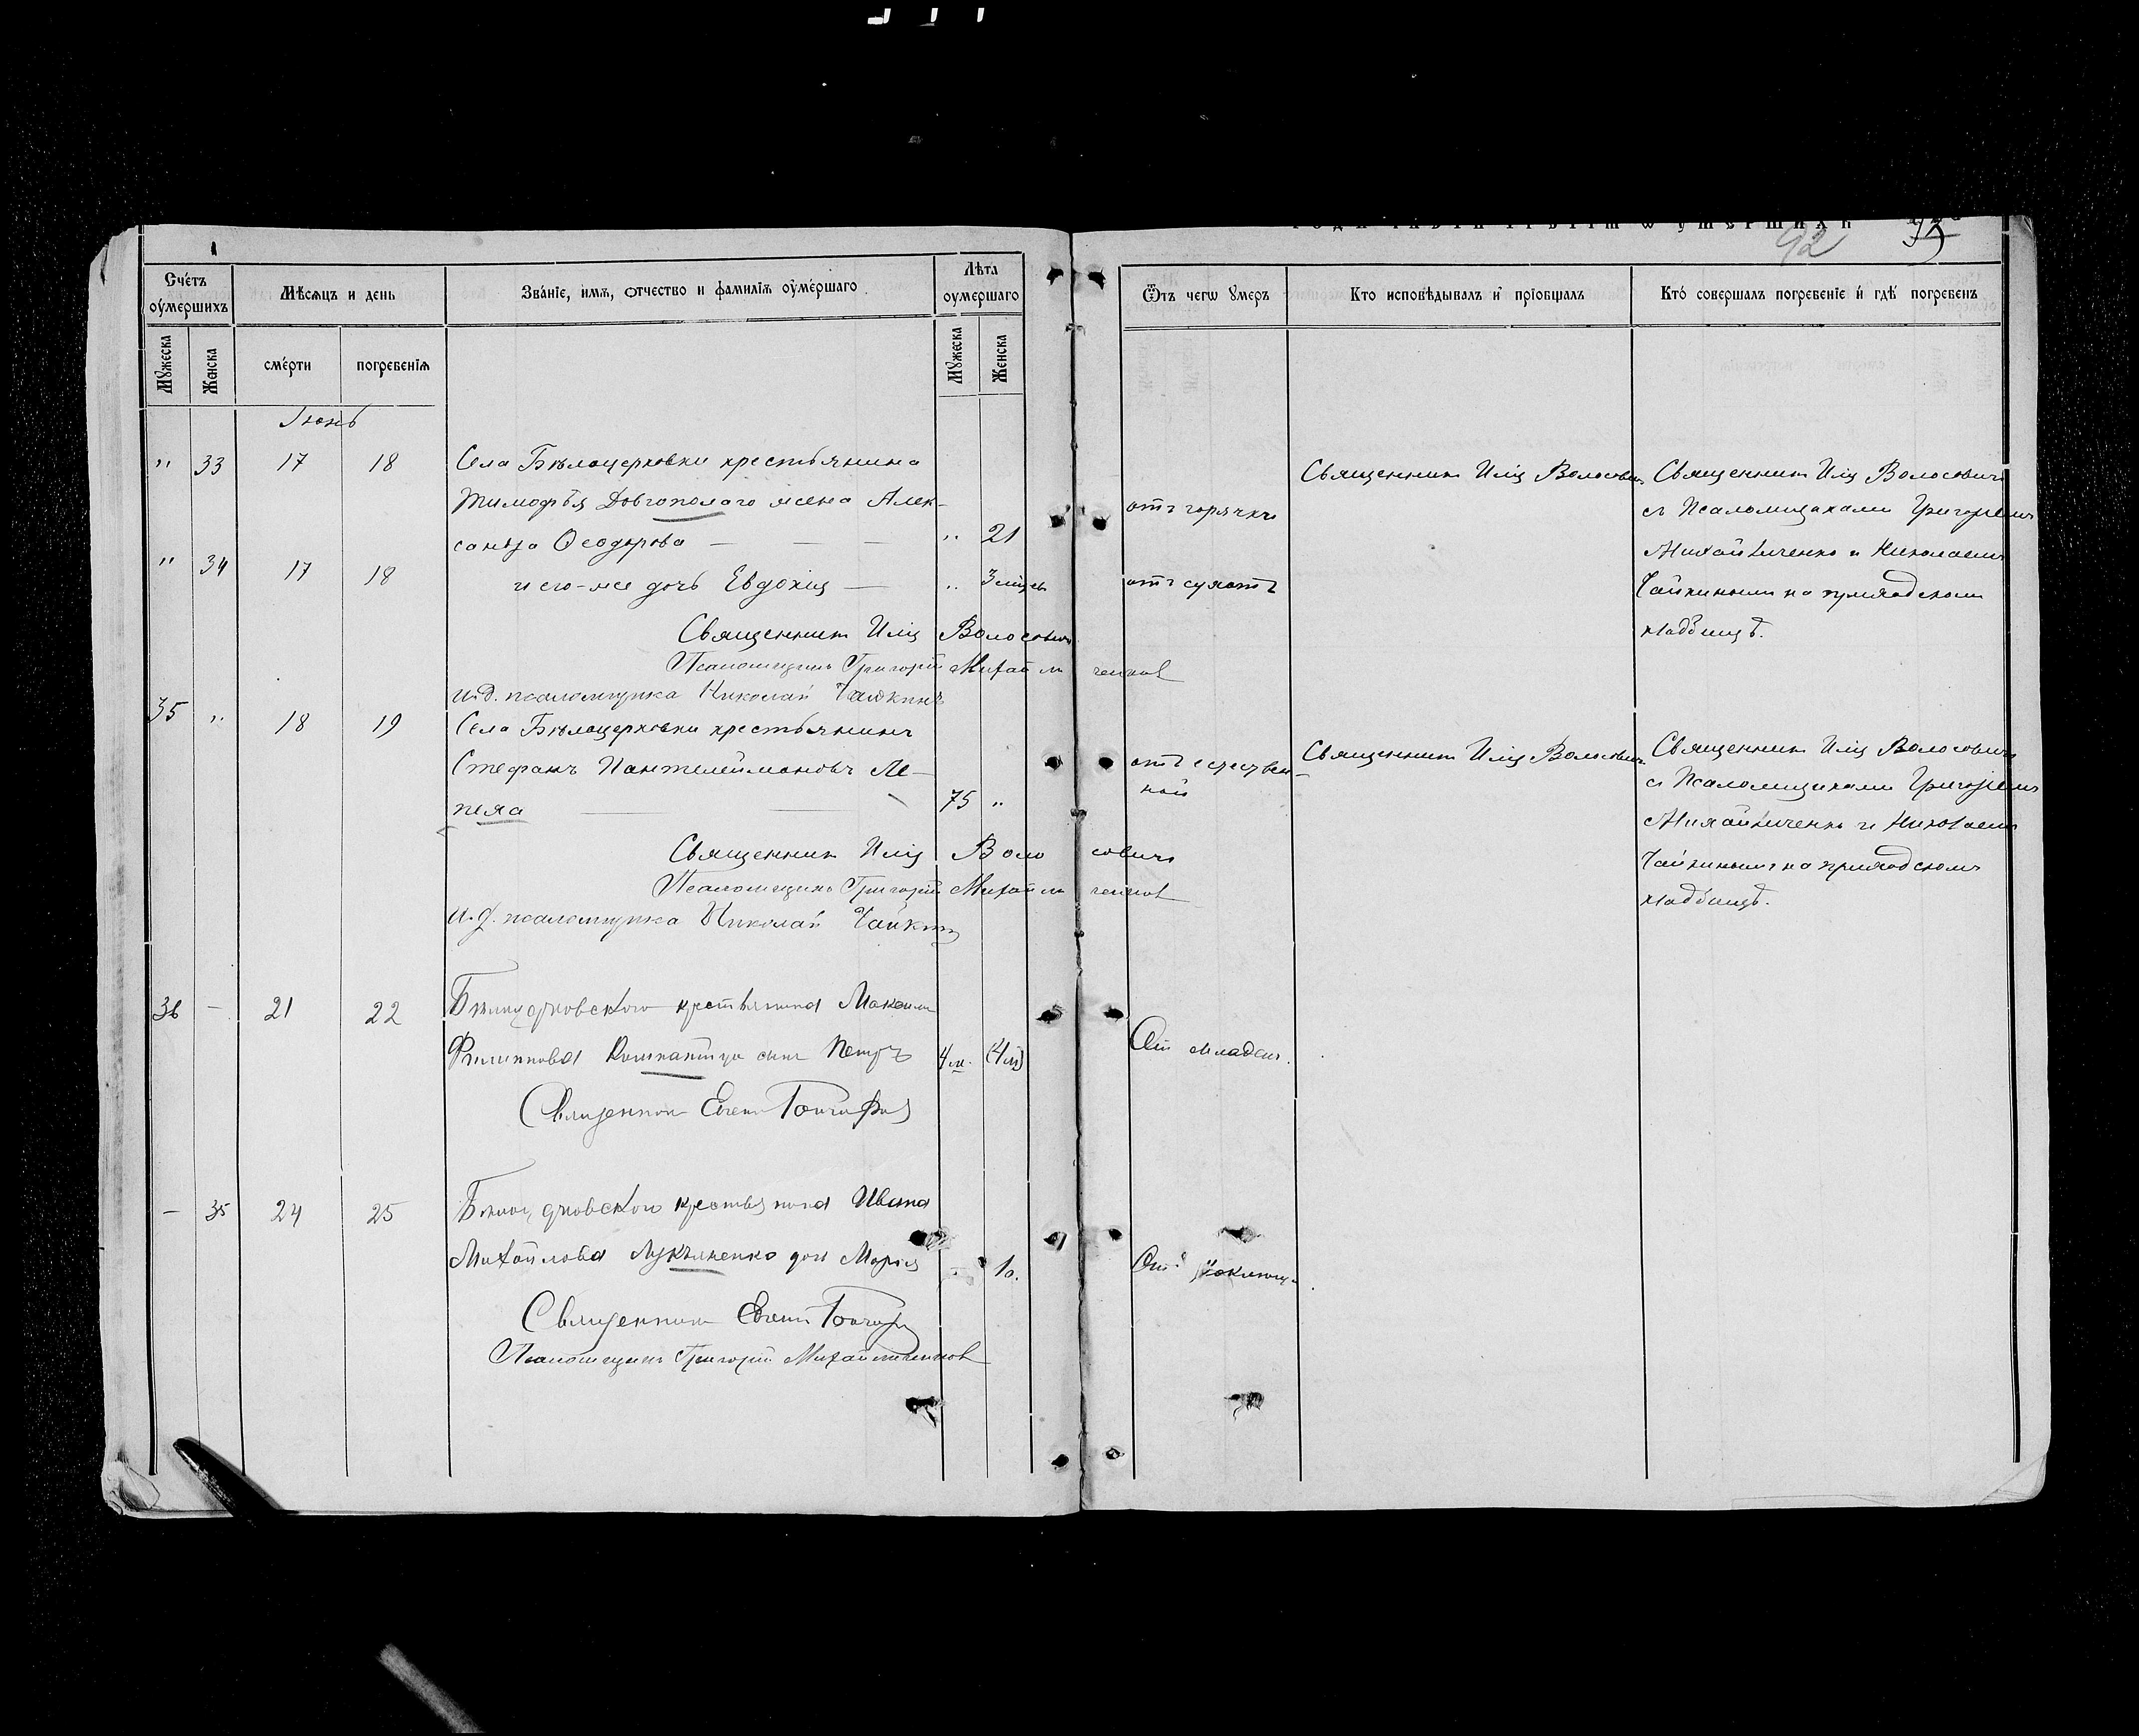 92
Счетъ оумершихъ
Мѣсяцъ и день
Званіе, имя, отчество и фамилія оумершаго
Лѣта оумершаго
Мужеска
Женска
смерти
погребенія
Мужеска
Женска
Ѿтъ чегѡ умеръ
Кто исповѣдывалъ и пріобщалъ
Кто совершалъ погребеніе и гдѣ погребенъ
Іюнь
" 33 17 18
Села Бѣлоцерковки крестьянина
Тимофѣя Довгополаго жена Алек-
сандра Ѳеодорова — — — " 21
отъ горячки
Священникъ Илія Волосовичъ
Священникъ Илія Волосовичъ
съ Псаломщиками Григоріемъ
Михайличенко и Николаемъ
Чайкинымъ на приходскомъ
кладбищѣ.
" 34 17 18
и его-же дочь Евдокія — " 3 мѣсяц
отъ сухотъ
Священникъ Илія Волосовичъ
Псаломщикъ Григорій Михайличенков
и.д. псаломщика Николай Чайкинъ
35 " 18 19
Села Бѣлоцерковки крестьянинъ
Стефанъ Пантелеймоновъ Ле-
пеха — — 75 "
отъ естествен-
ной
Священникъ Илія Волосовичъ
Священникъ Илія Волосовичъ
съ Псаломщиками Григоріемъ
Михайличенко и Николаемъ
Чайкинымъ на приходскомъ
кладбищѣ.
Священникъ Илія Волосовичъ
Псаломщикъ Григорій Михайличенков
и.д. псаломщика Николай Чайкинъ
36 — 21 22
Бѣлоцерковского крестьянина Максима
Филиппова сынъ Петръ 4 м. (4 м)
От младен.
Священник Евгений
— 35 24 25
Бѣлоцерковского крестьянина Ивана
Михайлова Лукьяненко дочь Марія — 10.
От коклюша
Священник Евгений
Псаломщикъ Григорій Михайличенков